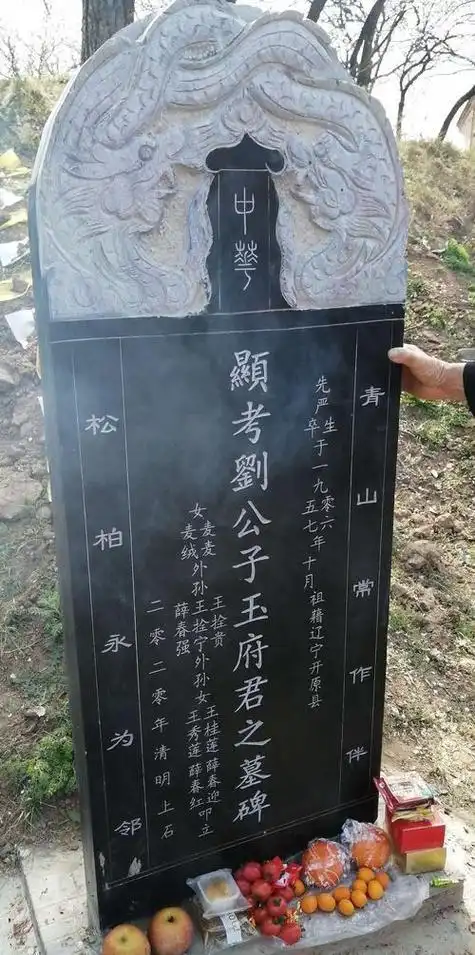 中華
青山常作伴
先严生卒于一九零六五七年十月祖籍辽宁开原县
顯考劉公子玉府君之墓碑
王拴贵王桂莲薛春迎叩立
女麦麦外孙王拴宁外孙女王秀莲薛春红
麦绒薛春强
二零二零年清明上石
松柏永为邻